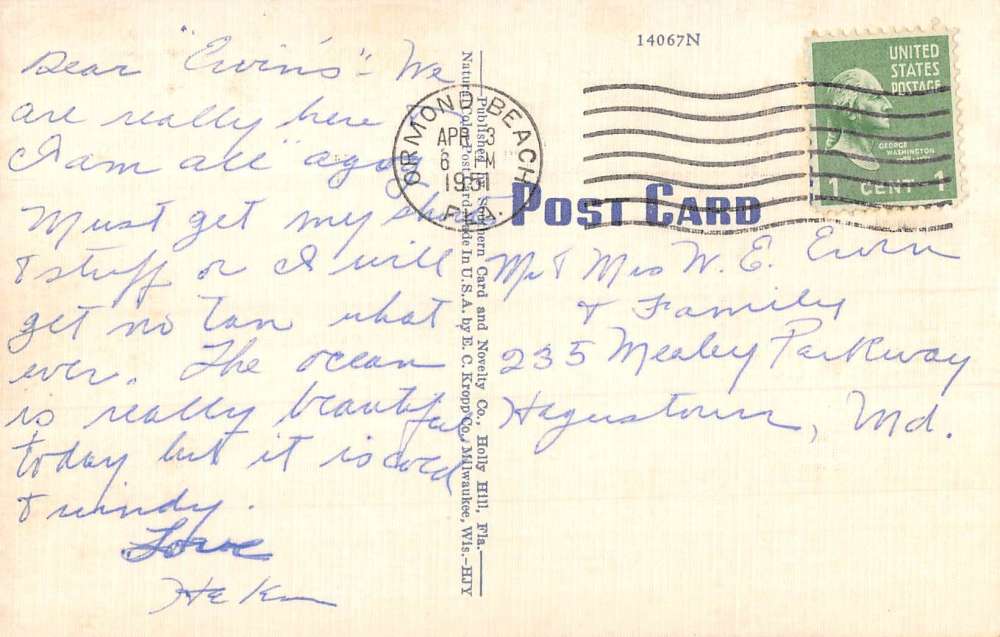 Dear "Ewin's" - We
are really here &
I am all "agog"
Must get my shorts
& stuff or I will
get no tan what
ever. The ocean
is really beautiful
today but it is cold
& windy.
Love
14067N
UNITED
STATES
POSTAGE
GEORGE
WASHINGTON
1 CENT 1
ORMOND BEACH
APR 3
6 PM
1951
FLA.
POST CARD
Mr & Mrs W. E. Ewin
& Family
235 Mealey Parkway
Hagerstown, Md.
Published by Southern Card and Novelty Co., Holly Hill, Fla.
Natural Color Post Card Made In U.S.A. by E. C. Kropp Co., Milwaukee, Wis.-HJY